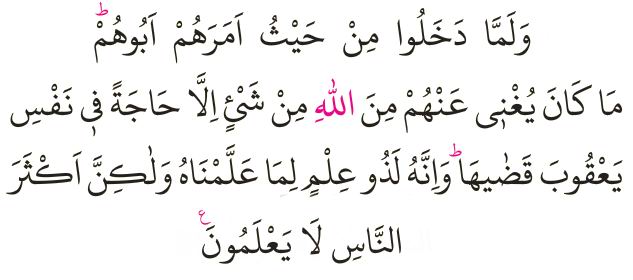 وَلَمَّا دَخَلُوا مِنْ حَيْثُ اَمَرَهُمْ اَبُوهُمْۜ
مَا كَانَ يُغْن۪ى عَنْهُمْ مِنَ اللّٰهِ مِنْ شَىْءٍ اِلَّا حَاجَةً ف۪ى نَفْسِ
يَعْقُوبَ قَضٰيهَاۜ وَاِنَّهُ لَذُو عِلْمٍ لِمَا عَلَّمْنَاهُ وَلٰكِنَّ اَكْثَرَ
النَّاسِ لَا يَعْلَمُونَ۟